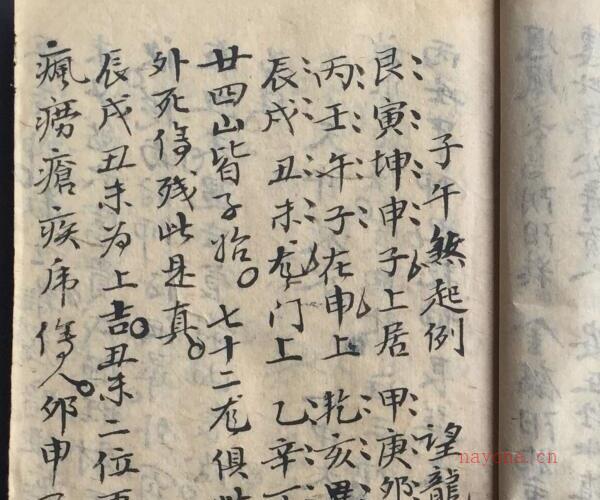 子午煞起例 望龍
艮寅坤申子上居 甲庚卯
丙壬午子在申上 乾亥巽
辰戌丑未龙门上 乙辛丁
廿四山皆子始。七十二龙俱
外死傷残此是真。
辰戌丑未为上吉。丑未二位
瘋痨瘡疾虎傷人。卯申
nayona.cn